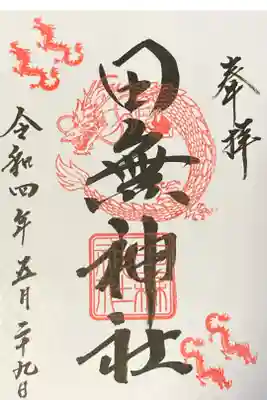 奉拝
田無神社
令和四年五月二十九日